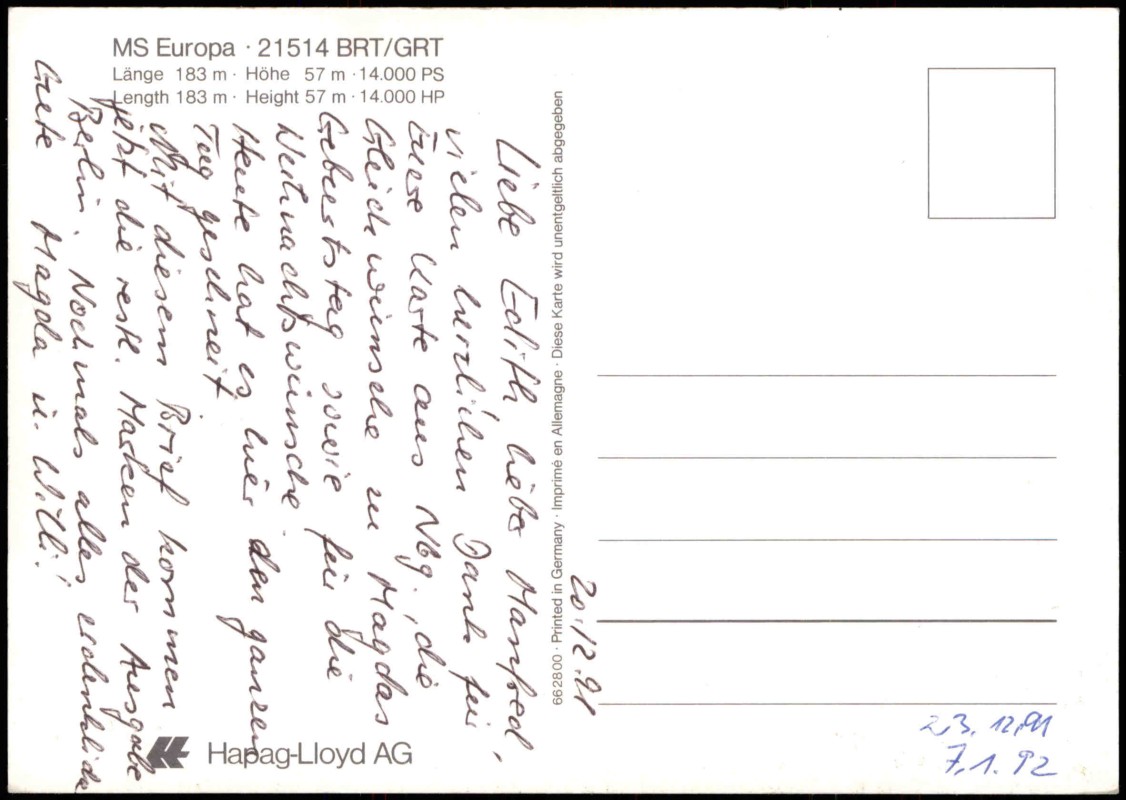 MS Europa · 21514 BRT/GRT
Länge 183 m · Höhe 57 m · 14.000 PS
Length 183 m · Height 57 m · 14.000 HP
20.12.91
Liebe Edith, lieber Manfred,
vielen herzlichen Dank für
Eure Karte aus Nbg., die
Glückwünsche zu Magdas
Geburtstag sowie für die
Weihnachtswünsche.
Heute hat es hier den ganzen
Tag geschneit.
Mit diesem Brief kommen
jetzt die restl. Marken der Ausgabe
Berlin. Nochmals alles erdenklich
Gute Magda u. Willi!
662800 · Printed in Germany · Imprimé en Allemagne · Diese Karte wird unentgeltlich abgegeben
Hapag-Lloyd AG
23.12.91
7.1.92